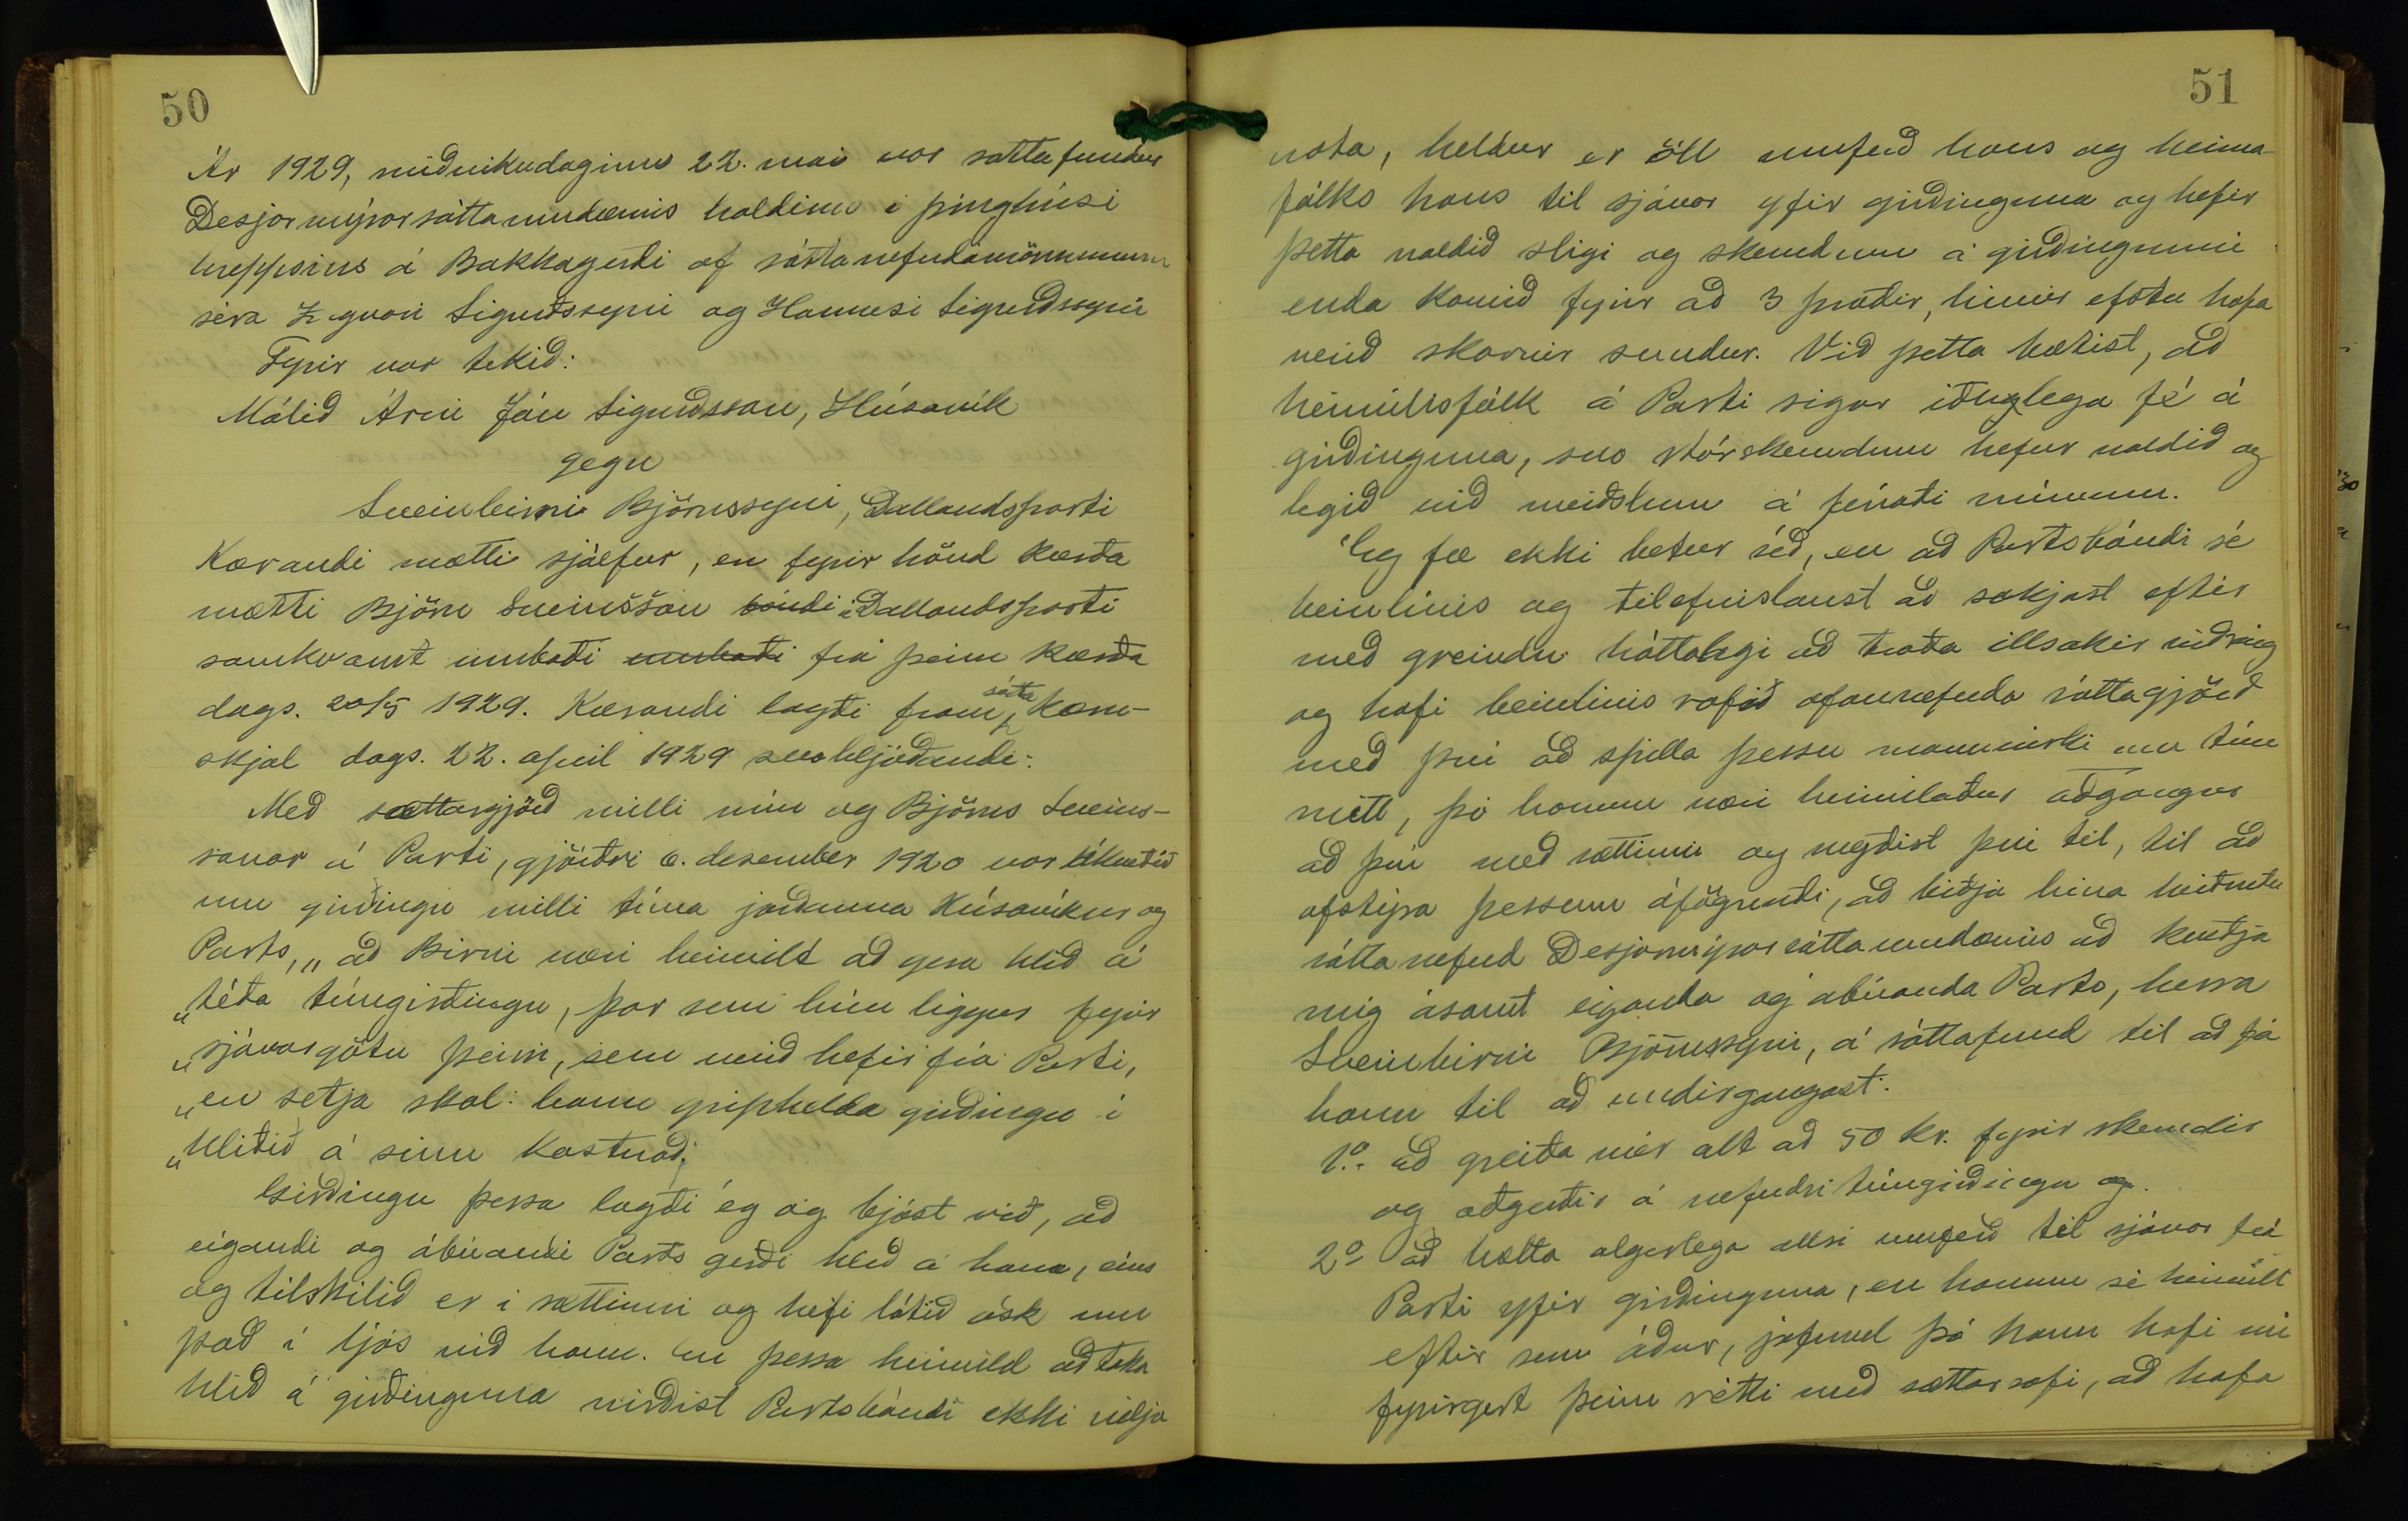 50
Ár 1929, miðvikudaginn 22. maí var sáttafundur
Desjarmýrarsáttaumdæmis haldinn í þinghúsi
hreppsins á Bakkagerði af sáttanefndamönnunum
séra Ingvari Sigurðssyni og Hannesi Sigurðssyni
Fyrir var tekið:
Málið Árni Jón Sigurðsson, Húsavík
gegn
Sveinbirni Björnssyni, Dallandsparti
Kærandi mætti sjálfur, en fyrir hönd kærða
mætti Björn Sveinsson bóndi í Dallandsparti
samkvæmt umboði umboði frá þeim kærða
dags. 20/5 1929. Kærandi lagði fram sátta kæru-
skjal dags. 22. apríl 1929 svohljóðandi:
Með sáttargjörð milli mín og Björns Sveins-
sonar á Parti, gjörðri 6. desember 1920 var ákveðið
um girðingu milli túna jarðanna Húsavíkur og
Parts, „að Birni væri heimilt að gera hlið á
„téða túngirðingu, þar sem hún liggur fyrir
„sjávargötu þeirri, sem verið hefir frá Parti,
„en setja skal hann griphelda girðingu í
„hliðið á sinn kostnað.
Girðingu þessa lagði ég og bjóst við, að
eigandi og ábúandi Parts gerði hlið á hana, eins
og tilskilið er í sættinni og hefi látið ósk um
það í ljós við hann. En þessa heimild að taka
hlið á girðinguna virðist Partsbóndi ekki vilja
51
nota, heldur er öll umferð hans og heima-
fólks hans til sjávar yfir girðinguna og hefir
þetta valdið sligi og skemdum á girðingunni
enda komið fyrir að 3 þræðir, hinir efstu hafa
verið skornir sundur. Við þetta bætist, að
heimilisfólk á Parti sigar iðuglega fé á
girðinguna, svo stórskemdum hefur valdið og
legið við meiðslum á fénaði mínum.
Eg fæ ekki betur séð, en að Partsbóndi sé
beinlínis og tilefnislaust að sækjast eftir
með greindu háttalagi að troða illsakir við mig
og hafi beinlínis rofið ofannefnda sáttagjörð
með því að spilla þessu mannvirki um tún
mitt, þó honum væri heimilaður aðgangur
að því með sættinni og neyðist því til, til að
afstýra þessum ófögnuði, að biðja hina heiðruðu
sáttanefnd Desjarmýrarsáttaumdæmis að kveðja
mig ásamt eiganda og ábúanda Parts, herra
Sveinbirni Björnssyni, á sáttafund til að fá
hann til að undirgangast:
1.º að greiða mér alt að 50 kr. fyrir skemdir
og aðgerðir á nefndri túngirðingu og
2º að hætta algerlega allri umferð til sjávar frá
Parti yfir girðinguna, en honum sé heimilt
eftir sem áður, jafnvel þó hann hafi nú
fyrirgert þeim rétti með sáttarrofi, að hafa